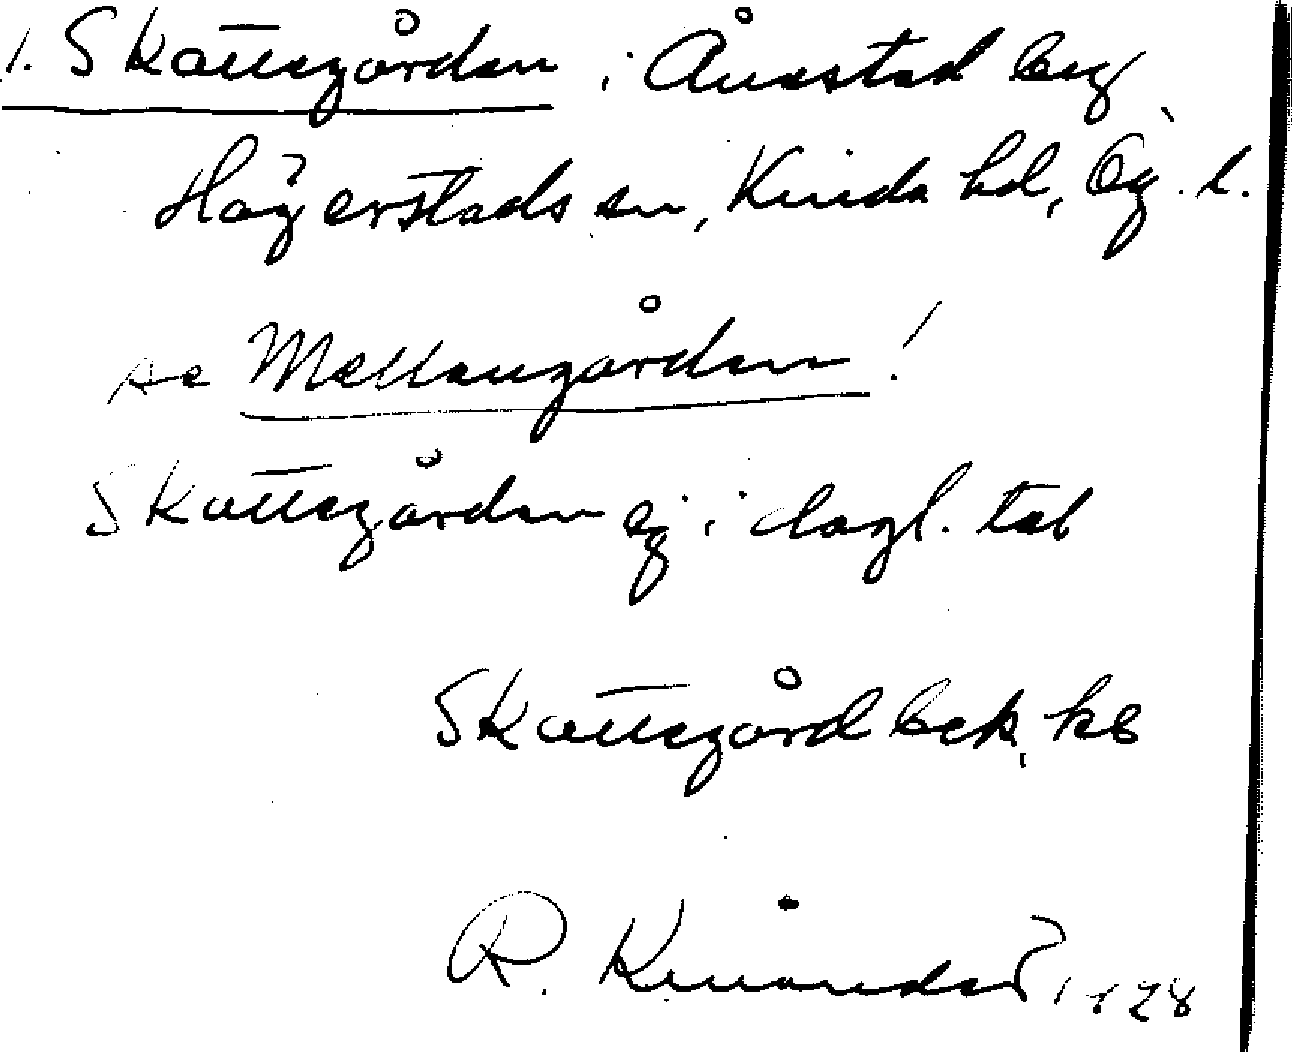 1. Skattegården i Ånestad by
Hägerstads sn, Kinda hd, Ög. l.
se Mellangården!
Skattegården ej i dagl. tal
Skattegård bek, kb
R. Kinander 1928